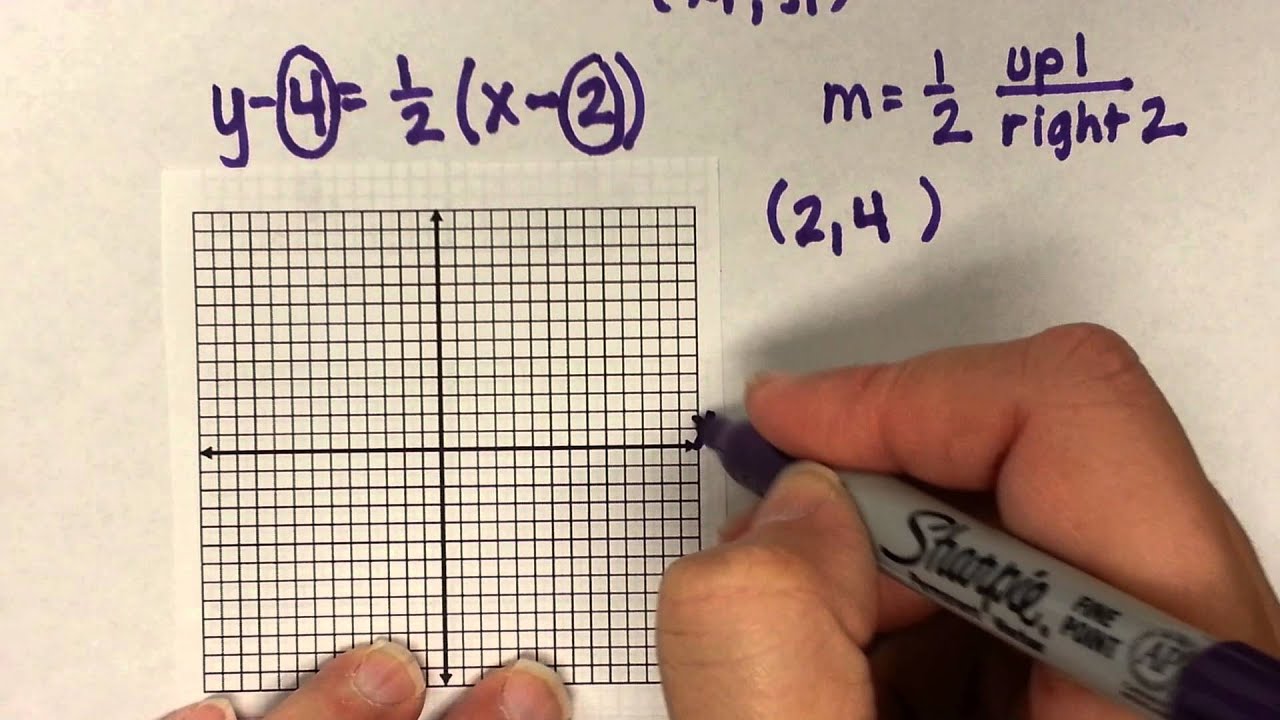 y-4=1/2(x-2)
m=1/2 up1/right 2
(2,4)
x
Sharpie.
FINE
POINT
AP